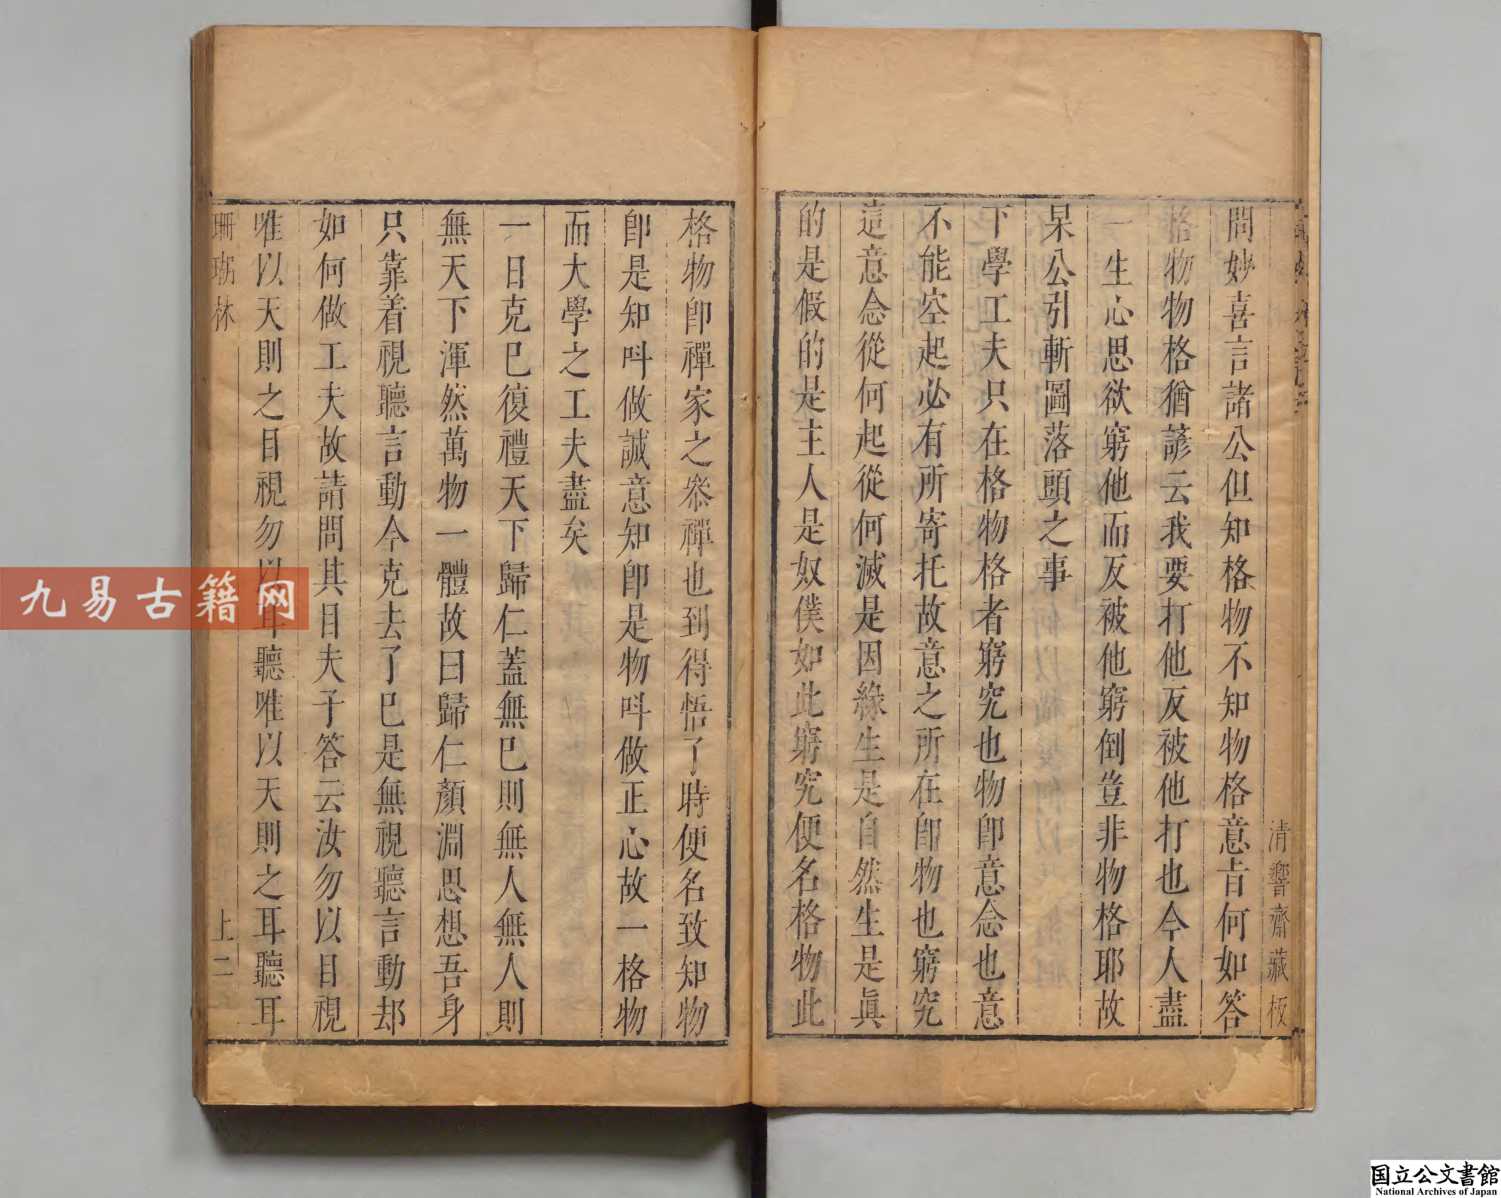 問妙喜言諸公但知格物不知物格意旨何如答
格物物格猶諺云我要打他反被他打也今人盡
一生心思欲窮他而反被他窮倒豈非物格耶故
杲公引斬圖落頭之事
下學工夫只在格物格者窮究也物卽意念也意
不能空起必有所寄托故意之所在卽物也窮究
這意念從何起從何滅是因緣生是自然生是眞
的是假的是主人是奴僕如此窮究便名格物此
清響齋藏板
格物卽禪家之叅禪也到得悟了時便名致知物
卽是知呌做誠意知卽是物呌做正心故一格物
而大學之工夫盡矣
一日克巳復禮天下歸仁蓋無巳則無人無人則
無天下渾然萬物一體故曰歸仁顏淵思想吾身
只靠着視聽言動今克去了巳是無視聽言動却
如何做工夫故請問其目夫子答云汝勿以目視
唯以天則之目視勿以耳聽唯以天則之耳聽耳
珊瑚林
上二
九易古籍网
国立公文書館
National Archives of Japan